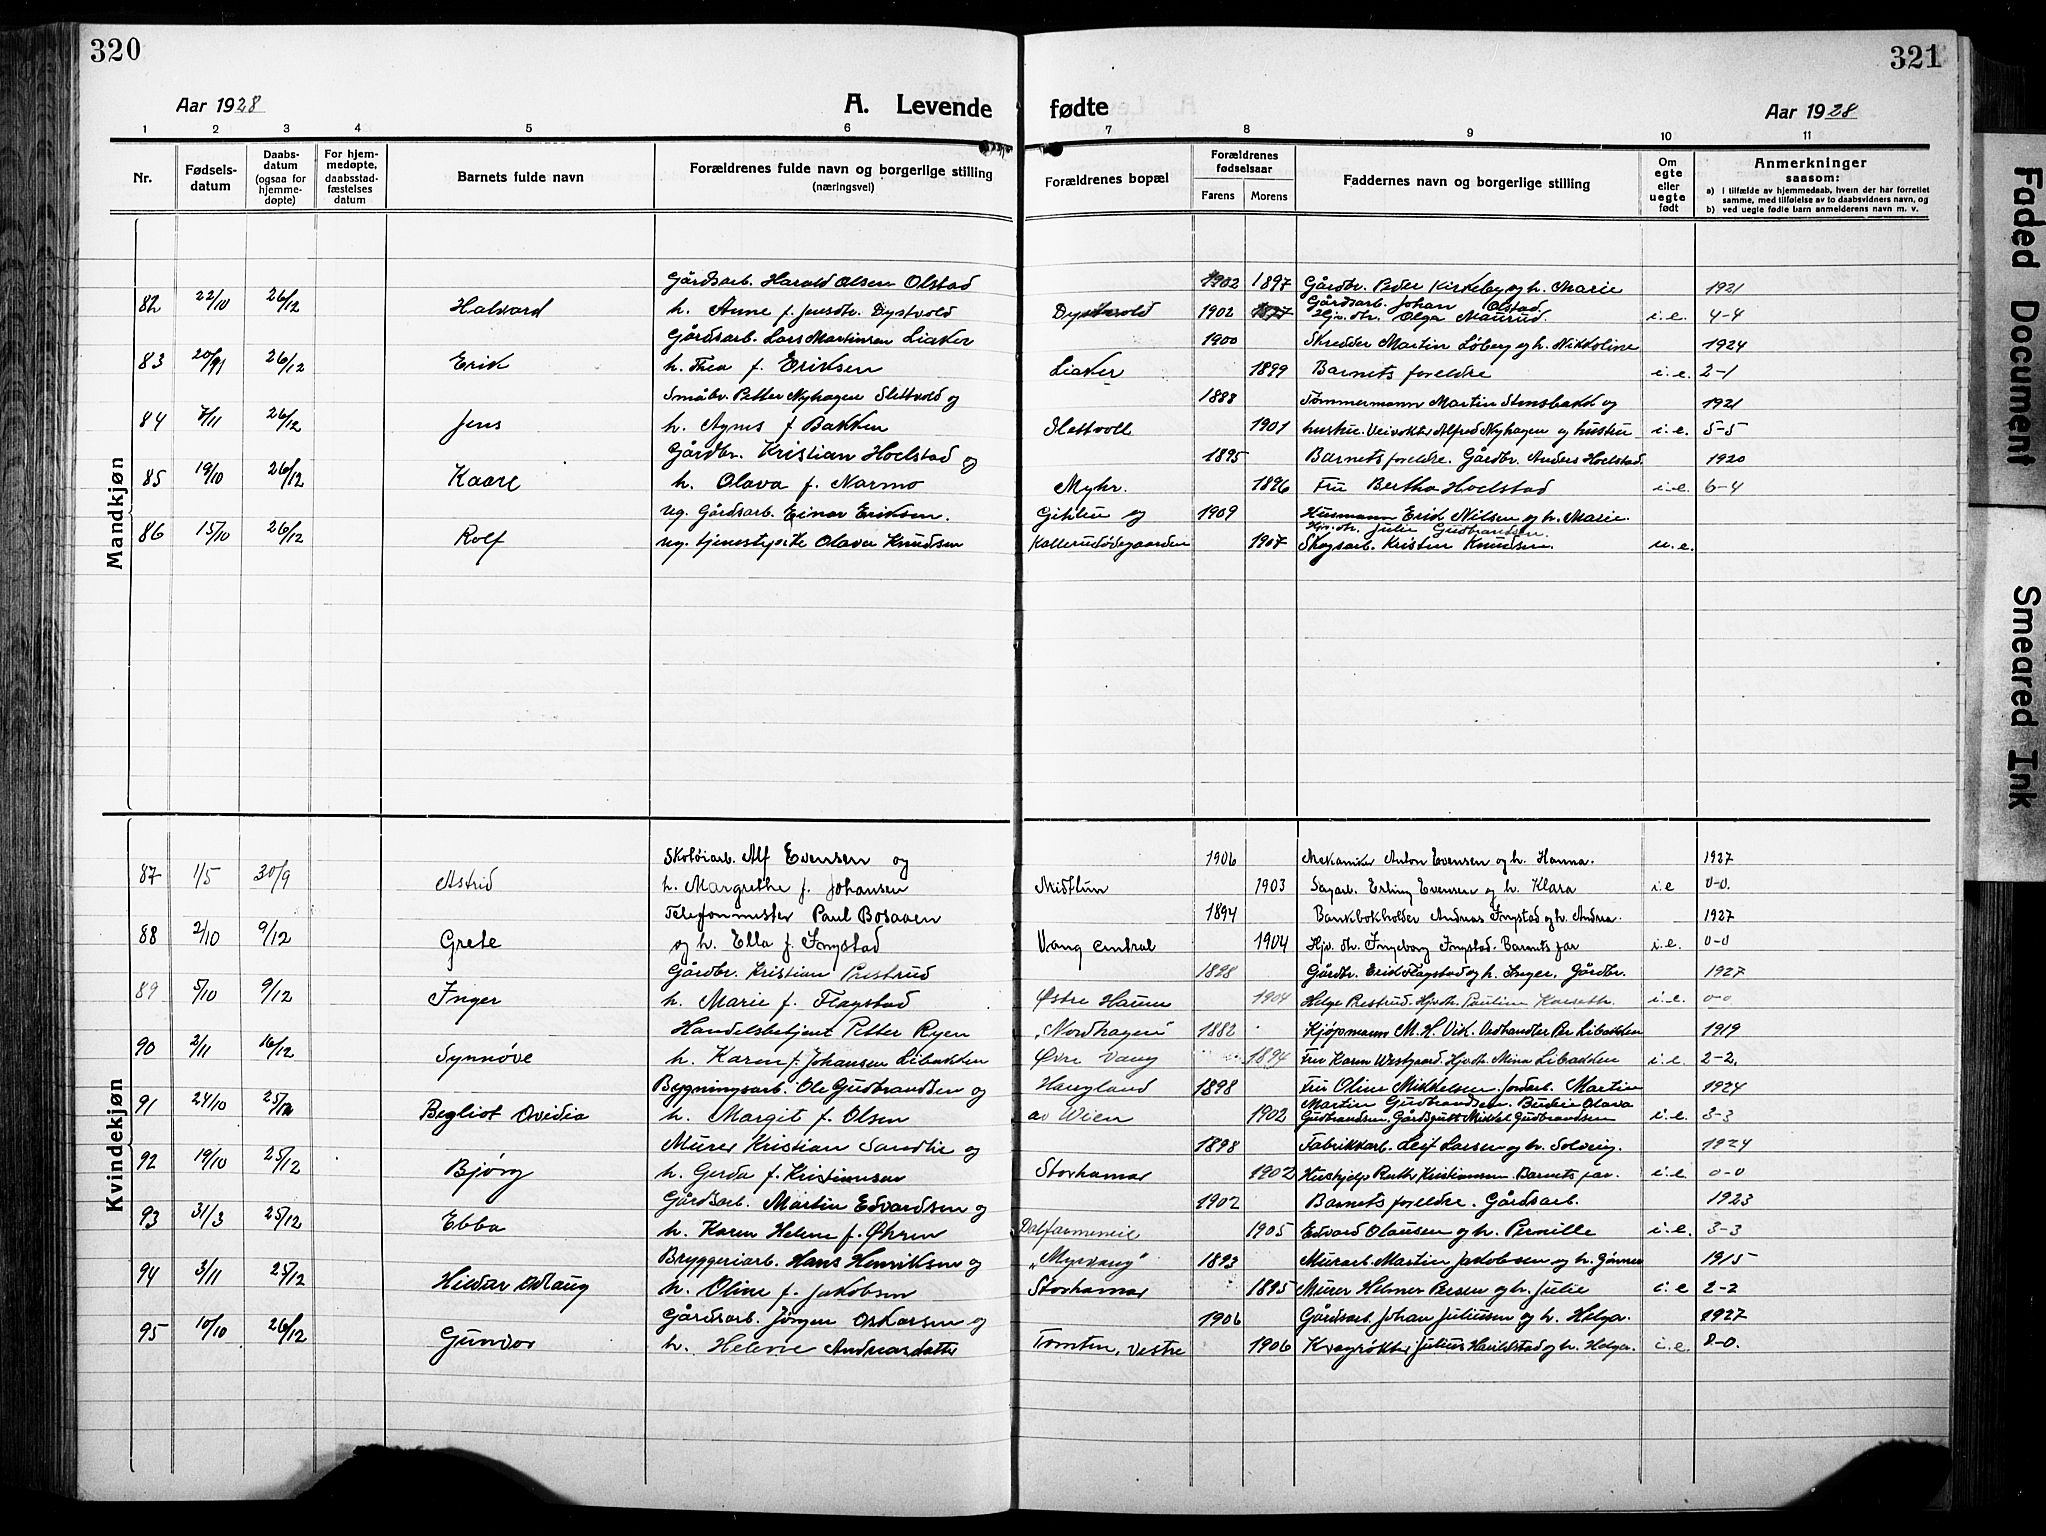 320
Aar 1928
A. Levende
1 2 3 4 5 6
Nr.
Fødsels-
datum
Daabs-
datum
(ogsaa for
hjemme-
døpte)
For hjem-
medøpte,
daabsstad-
fæstelses
datum
Barnets fulde navn
Forældrenes fulde navn og borgerlige stilling
(næringsvei)
Mandkjøn
Gårdsarb. Harald Olsen Olstad
82 22/10 26/12 Halvard h. Anne f. Jensdtr. Dystvold
Gårdsarb. Lars Martinsen Liaker
83 26/12 Erik h. Thea f. Eriksen
Småbr. Petter Nyhagen Slettvold og
84 7/11 26/12 Jens h. Agnes f Bakken
Gårdbr. Kristian Hoelstad og
85 19/10 26/12 Kaare h. Olava f. Narmo
ug. Gårdsarb. Einar Eriksen.
86 15/10 26/12 Rolf ug. tjenestepike Olava Knudsen
Kvindekjøn
Skotøiarb. Alf Evensen og
87 1/5 30/9 Astrid h. Margrethe f. Johansen
Telefonmester Paul Bosaaen
88 2/10 9/12 Grete og h. Ella f. Ingstad
Gårdbr. Kristian Prestrud
89 5/10 9/12 Inger h. Marie f. Flagstad
Handelsbetjent Petter Ryen
90 2/11 16/12 Synnøve h. Karen f. Johansen Libakken
Bygningsarb. Ole Gudbrandsen og
91 24/10 25/12 Begliot Ovidia h. Margit f. Olsen
Murer Kristian Sandlie og
92 19/10 25/12 Bjørg h. Gerda f. Kristiansen
Gårdsarb. Martin Edvardsen og
93 31/3 25/12 Ebba h. Karen Helene f. Øhren
Bryggeriarb. Hans Henriksen og
94 3/11 25/12 Hildar h. Oline f. Jakobsen
Gårdsarb. Jørgen Oskarsen og
95 10/10 26/12 Gunvor h. Helene Andreasdatter
321
fødte
Aar 1928
7 8 9 10 11
Forældrenes bopæl
Forældrenes
fødselsaar
Farens Morens
Faddernes navn og borgerlige stilling
Om
egte
eller
uegte
født
Anmerkninger
saasom:
a) i tilfælde av hjemmedaab, hvem der har forrettet
samme, med tilføielse av to daabsvidners navn, og
b) ved uegte fødte barn anmelderens navn m. v.
1902 1897 Gårdbr. Peder Kirkeby og h. Marie 1921
Gårdsarb. Johan Olstad.
Dystvold 1902 Hjv. dtr. Olga Maurud. i.e. 4-4
1900 Skredder Martin Løberg og h. Nikoline 1924
Liaker 1899 Barnets foreldre i.e. 2-1
1888 Tømmermann Martin Stensbakk og 1921
Slettvoll 1901 hustru. Veivokter Alfred Nyhagen og hustru i.e. 5-5
1895 Barnets foreldre. Gårdbr. Anders Hoelstad. 1920
Myhr. 1896 Fru Bertha Hoelstad i.e. 6-4
Gihlen og 1909 Husmann Erik Nilsen og h. Marie.
Hjv. dtr. Julie Gudbrandsen.
Kallerudødegaarden 1907 Skogsarb. Kristin Knudsen. u.e.
1906 Mekaniker Anton Evensen og h. Hanna. 1927
Midttun 1903 Sagarb. Erling Evensen og h. Klara i.e 0-0.
1894 Bankbokholder Andreas Ingstad og h. Andrea. 1927
Vang central 1904 Hjv. dtr. Ingeborg Ingstad. Barnets far i.e. 0-0
1898 Gårdbr. Erik Flagstad og h. Inger. Gårdbr. 1927
Østre Haum 1904 Helge Prestrud. Hjv.dtr. Pauline i.e. 0-0
"Nordhagen" 1882 Kjøpmann M. H. Vik. Vedhandler Per Libakken 1919
Øvre Vang 1894 Fru Karen Westgaard. Hjv.dtr. Mina Libakken i.e. 2-2.
Haugland 1898 Fru Oline Mikkelsen. Jordarb. Martin 1924
Martin Gudbrandsen. Budeie Olava
av Wien 1902 Gudbrandsen. Gårdsgutt Mikkel Gudbrandsen i.e. 3-3
1898 Fabrikkarb. Leif Larsen og h. Solveig. 1924
Storhamar 1902 Hushjelp Ruth Kristiansen. Barnets far. i.e. 0-0
1902 Barnets foreldre. Gårdsarb. 1923
Dalfarmeneie 1905 Edvard Olausen og h. Pernille i.e. 3-3
"Myrvang" 1893 Murarb. Martin Jakobsen og h. 1915
Storhamar 1895 Murer Helmer Bersen og h. Julie i.e 2-2
1906 Gårdsarb. Johan Juliusen og h. Helga. 1927
Tomten, vestre 1906 Kvegrøkter Julius og h. Helga. i.e. 0-0.
Faded Document
Smeared Ink